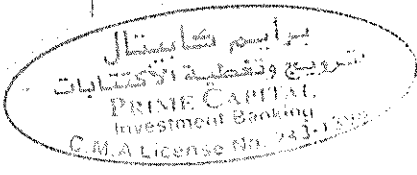 برايم كابيتال
لترويج وتغطية الاكتتابات
PRIME CAPITAL
Investment Banking
C.M.A License No.